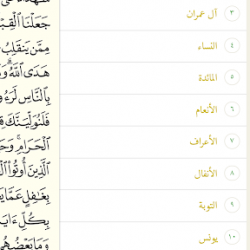 ٣ آل عمران
٤ النساء
٥ المائدة
٦ الأنعام
٧ الأعراف
٨ الأنفال
٩ التوبة
١٠ يونس
جَعَلْنَا
مِمَّن يَنقَلِبُ
هَدَى ٱللَّهُ ۗ
بِٱلنَّاسِ
فَلَنُوَلِّيَنَّكَ
ٱلْحَرَامِ ۚ
ٱلَّذِينَ أُوتُوا۟
بِغَٰفِلٍ عَمَّا
بِكُلِّ
وَمَا بَعْضُهُم